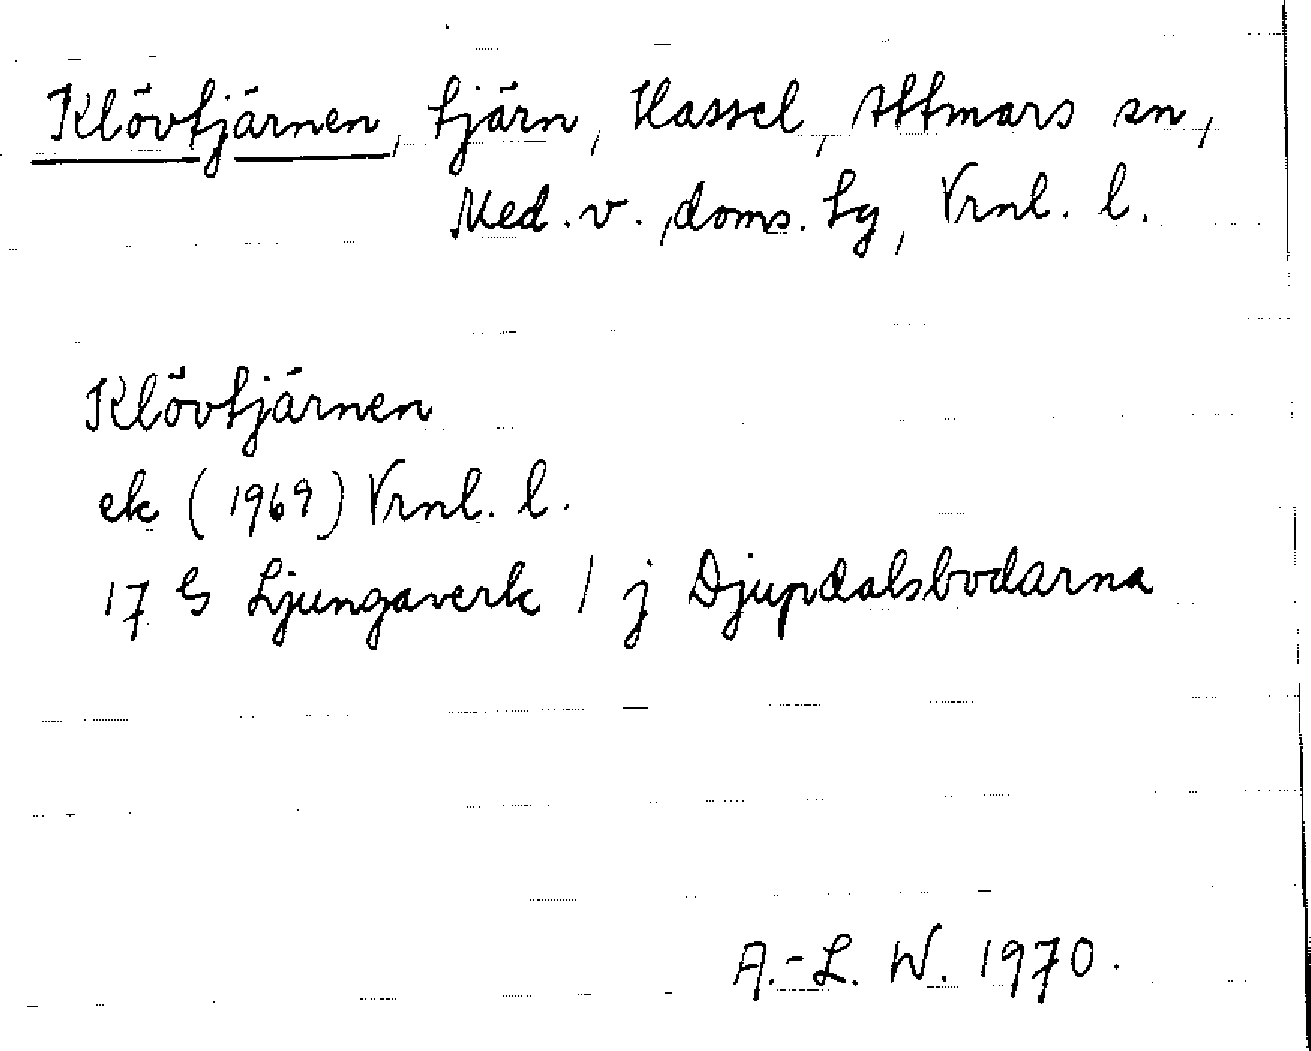 Klövtjärnen, tjärn, Hassel, Attmars sn,
Med. v. doms. lg, Vrnl. l.
Klövtjärnen
ek (1969) Vrnl. l.
17 G Ljungaverk 1 j Djupdalsbodarna
A.-L. W. 1970.